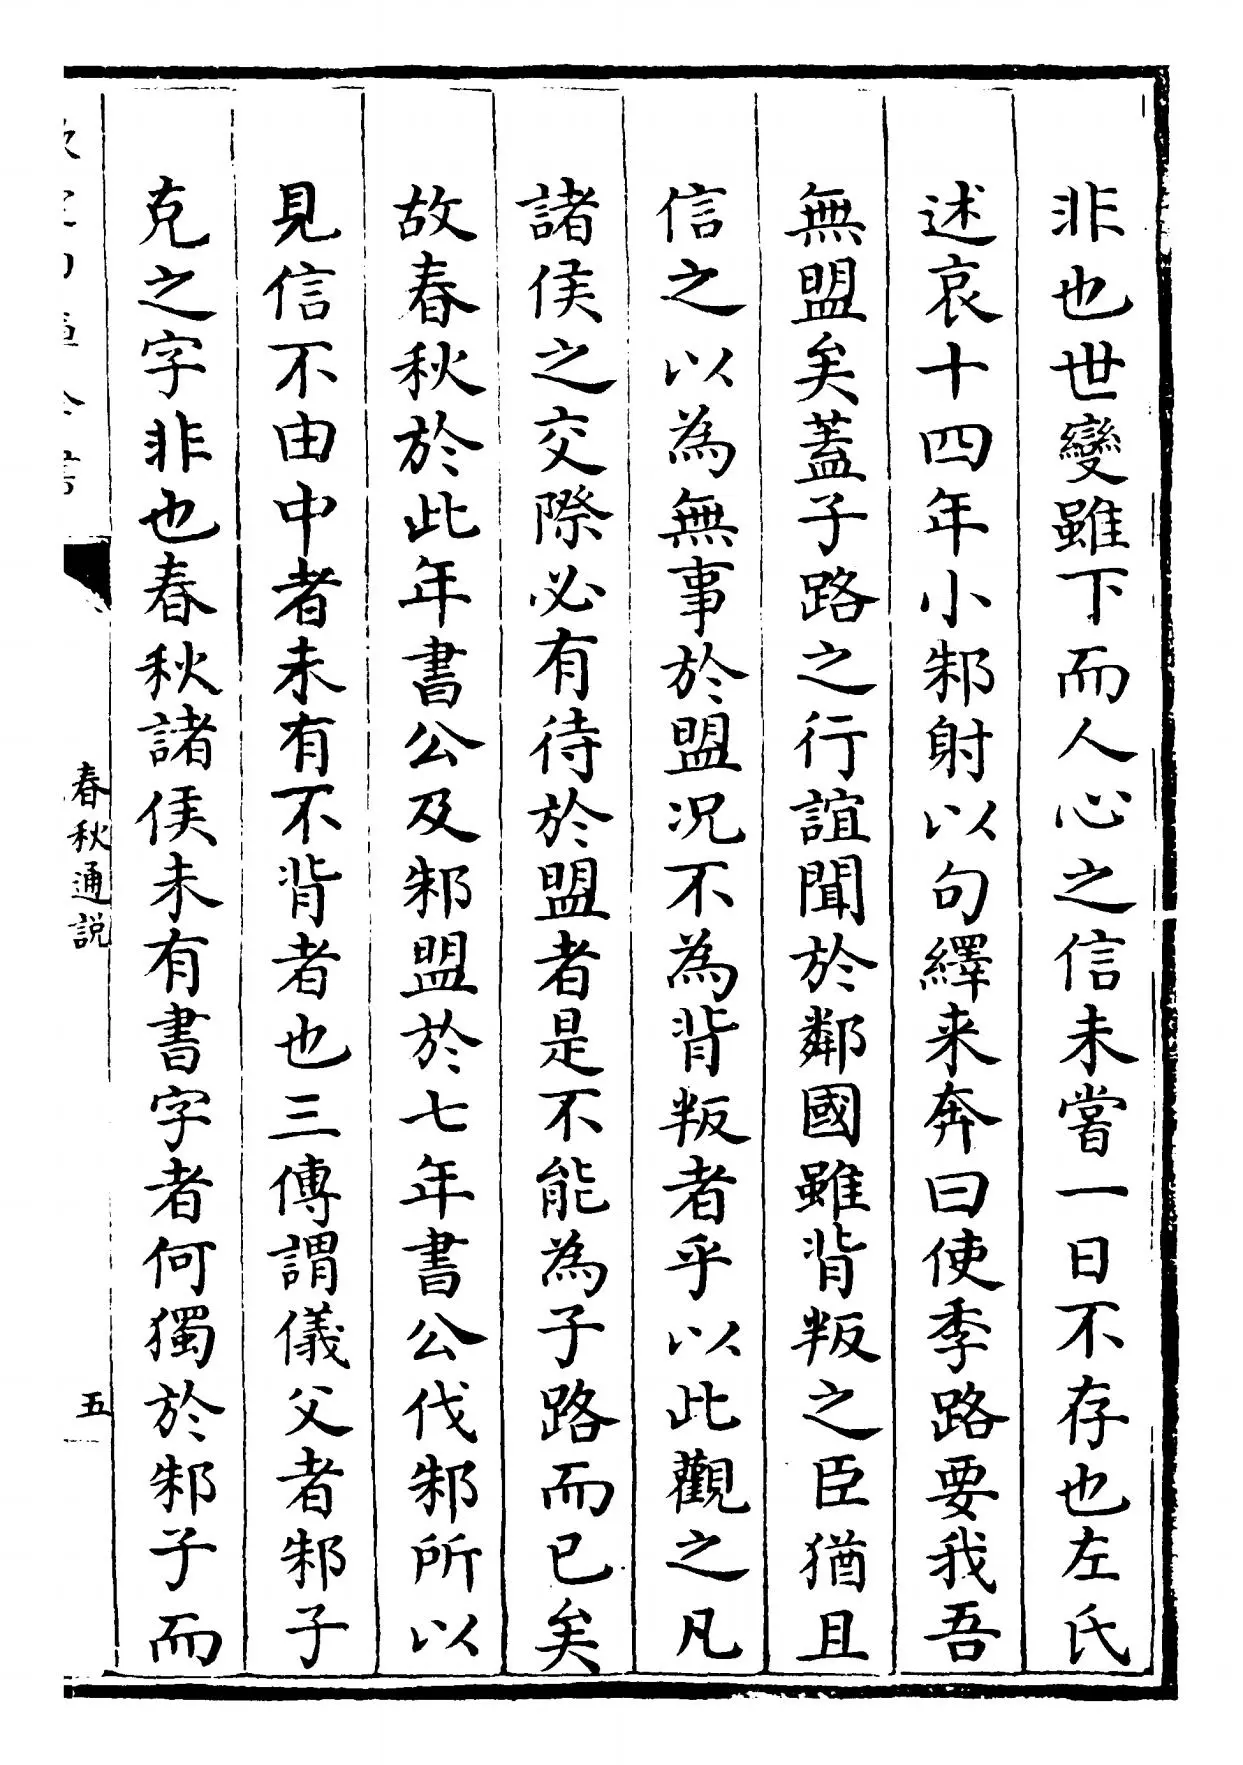 非也世變雖下而人心之信未嘗一日不存也左氏
述哀十四年小邾射以句繹来奔曰使季路要我吾
無盟矣蓋子路之行誼聞於鄰國雖背叛之臣猶且
信之以為無事於盟况不為背叛者乎以此觀之凡
諸侯之交際必有待於盟者是不能為子路而已矣
故春秋於此年書公及邾盟於七年書公伐邾所以
見信不由中者未有不背者也三傳謂儀父者邾子
克之字非也春秋諸侯未有書字者何獨於邾子而
春秋通説
五